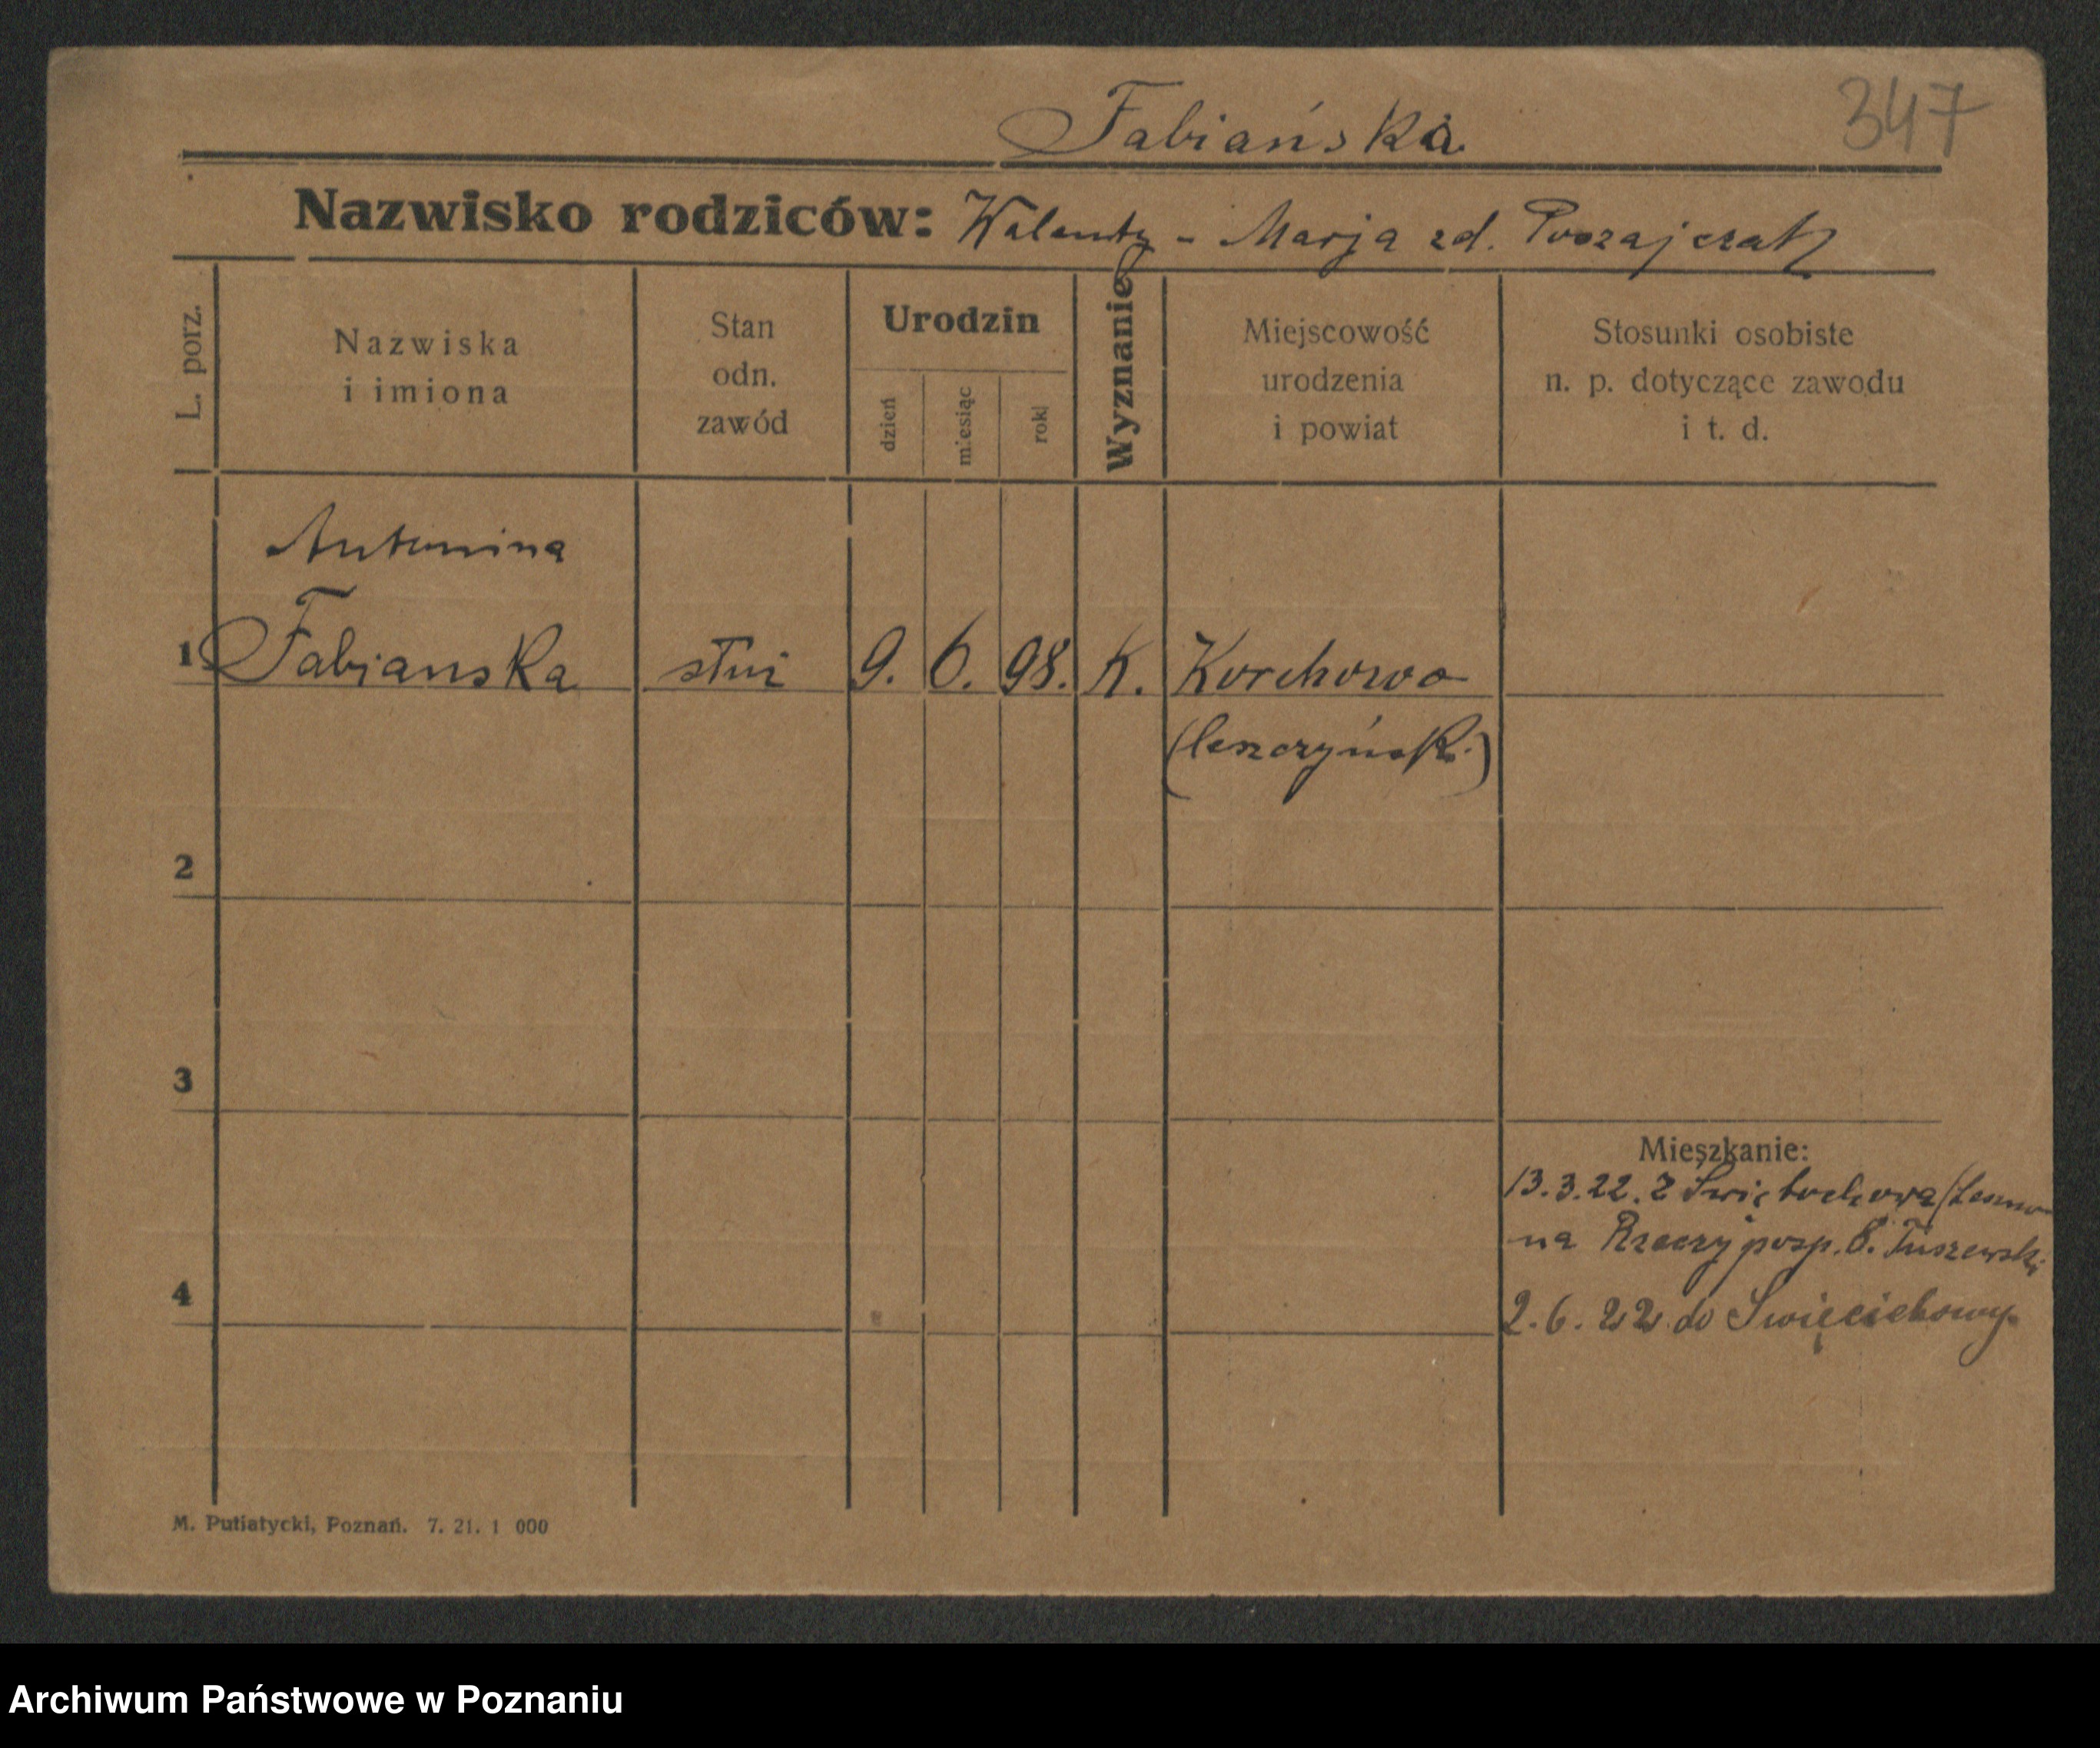 Fabiańska
347
Nazwisko rodziców: Walenty - Marja zd.
L. porz.
Nazwiska
i imiona
Stan
odn.
zawód
Urodzin
dzień
miesiąc
rok
Wyznanie
Miejscowość
urodzenia
i powiat
Stosunki osobiste
n. p. dotyczące zawodu
i t. d.
Antonina
1 Fabianska służ 9. 6. 98. K. Korchowo
(leszczyńsk.)
2
3
Mieszkanie:
13.3.22. z
na Rzeczyposp. 6.
4
2.6.22 do Swięciechowy.
M. Putiatycki, Poznań. 7. 21. 1 000
Archiwum Państwowe w Poznaniu